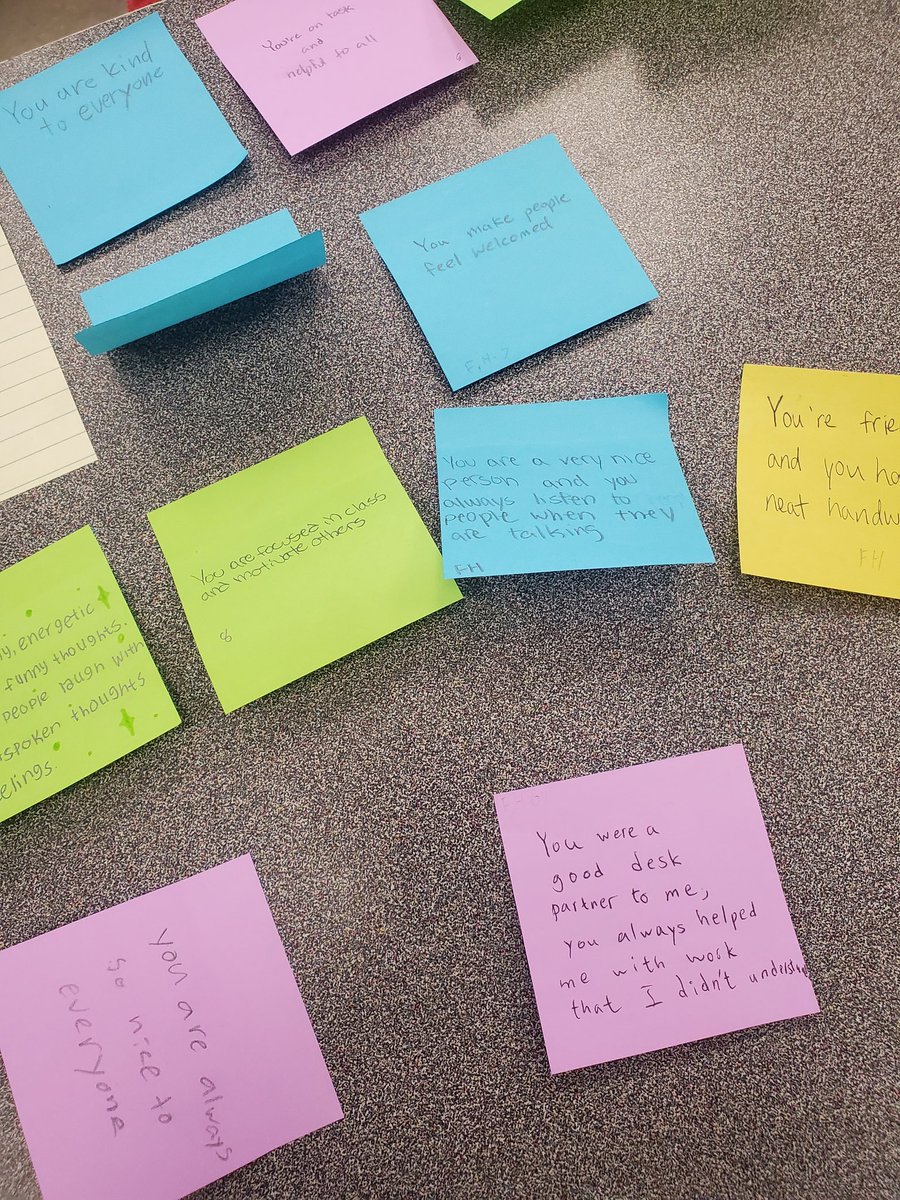 You are kind
to everyone
You're on task
and
helpful to all
6
You make people
feel welcomed
F.H. 7
You are a very nice
person and you
always listen to
people when they
are talking
FH
You're frie
and you ha
neat handw
FH
You are focused in class
and motivate others
8
y, energetic
funny thoughts.
people laugh with
spoken thoughts
elings.
You were a
good desk
partner to me,
you always helped
me with work
that I didn't understand
you are always
so nice to
everyone